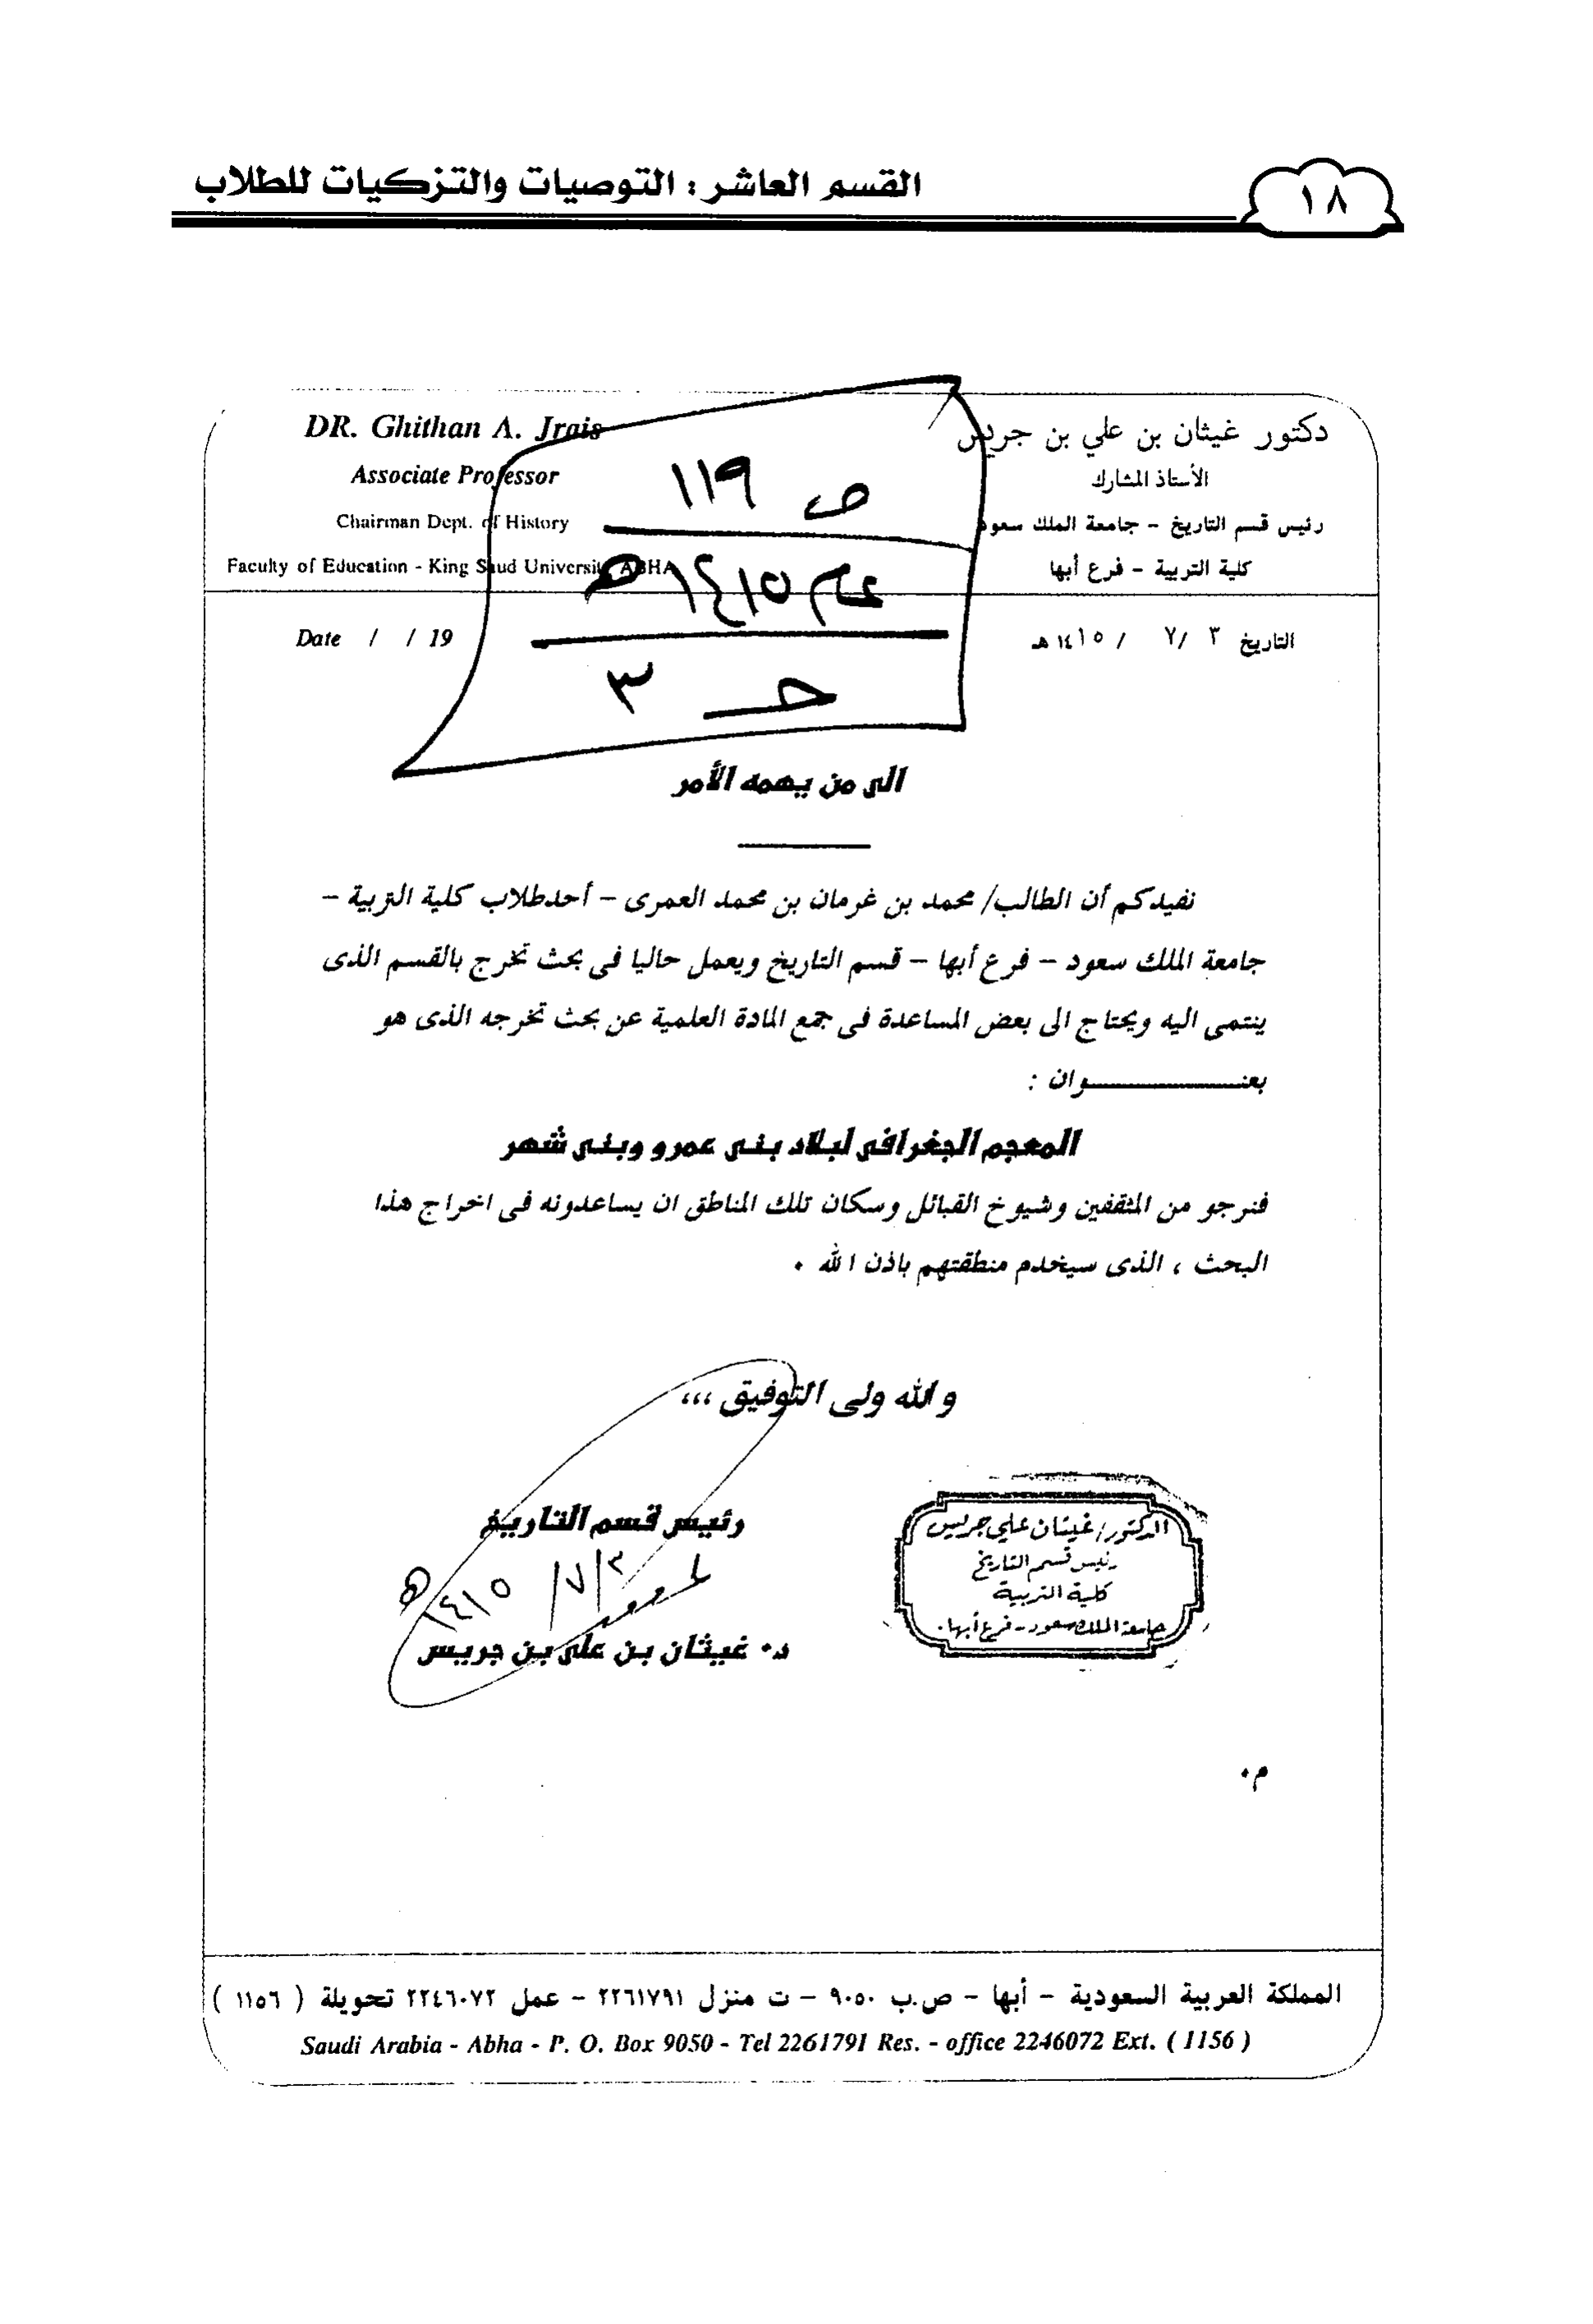 ١٨
القسم العاشر : التوصيات والتزكيات للطلاب
دكتور غيثان بن علي بن جريس
الأستاذ المشارك
رئيس قسم التاريخ - جامعة الملك سعود
كلية التربية - فرع أبها
DR. Ghithan A. Jrais
Associate Professor
Chairman Dept. of History
Faculty of Education - King Saud University ABHA
ص ١١٩
عام ١٤١٥هـ
حـ ٣
التاريخ ٣ / ٧ / ١٤١٥ هـ
Date / / 19
الى من يهمه الأمر
نفيدكم أن الطالب/ محمد بن غرمان بن محمد العمرى - أحدطلاب كلية التربية -
جامعة الملك سعود - فرع أبها - قسم التاريخ ويعمل حاليا فى بحث تخرج بالقسم الذى
ينتمى اليه ويحتاج الى بعض المساعدة فى جمع المادة العلمية عن بحث تخرجه الذى هو
بعنـــــــــــوان :
المعجم الجغرافى لبلاد بنى عمرو وبنى شهر
فنرجو من المثقفين وشيوخ القبائل وسكان تلك المناطق ان يساعدونه فى اخراج هذا
البحث ، الذى سيخدم منطقتهم باذن الله ٠
والله ولى التوفيق ،،،
رئيس قسم التاريخ
٣/٧/١٤١٥هـ
د٠ غيثان بن على بن جريس
الدكتور/ غيثان علي جريس
رئيس قسم التاريخ
كلية التربية
جامعة الملك سعود - فرع أبها.
م٠
المملكة العربية السعودية - أبها - ص.ب ٩٠٥٠ - ت منزل ٢٢٦١٧٩١ - عمل ٢٢٤٦٠٧٢ تحويلة ( ١١٥٦ )
Saudi Arabia - Abha - P. O. Box 9050 - Tel 2261791 Res. - office 2246072 Ext. ( 1156 )